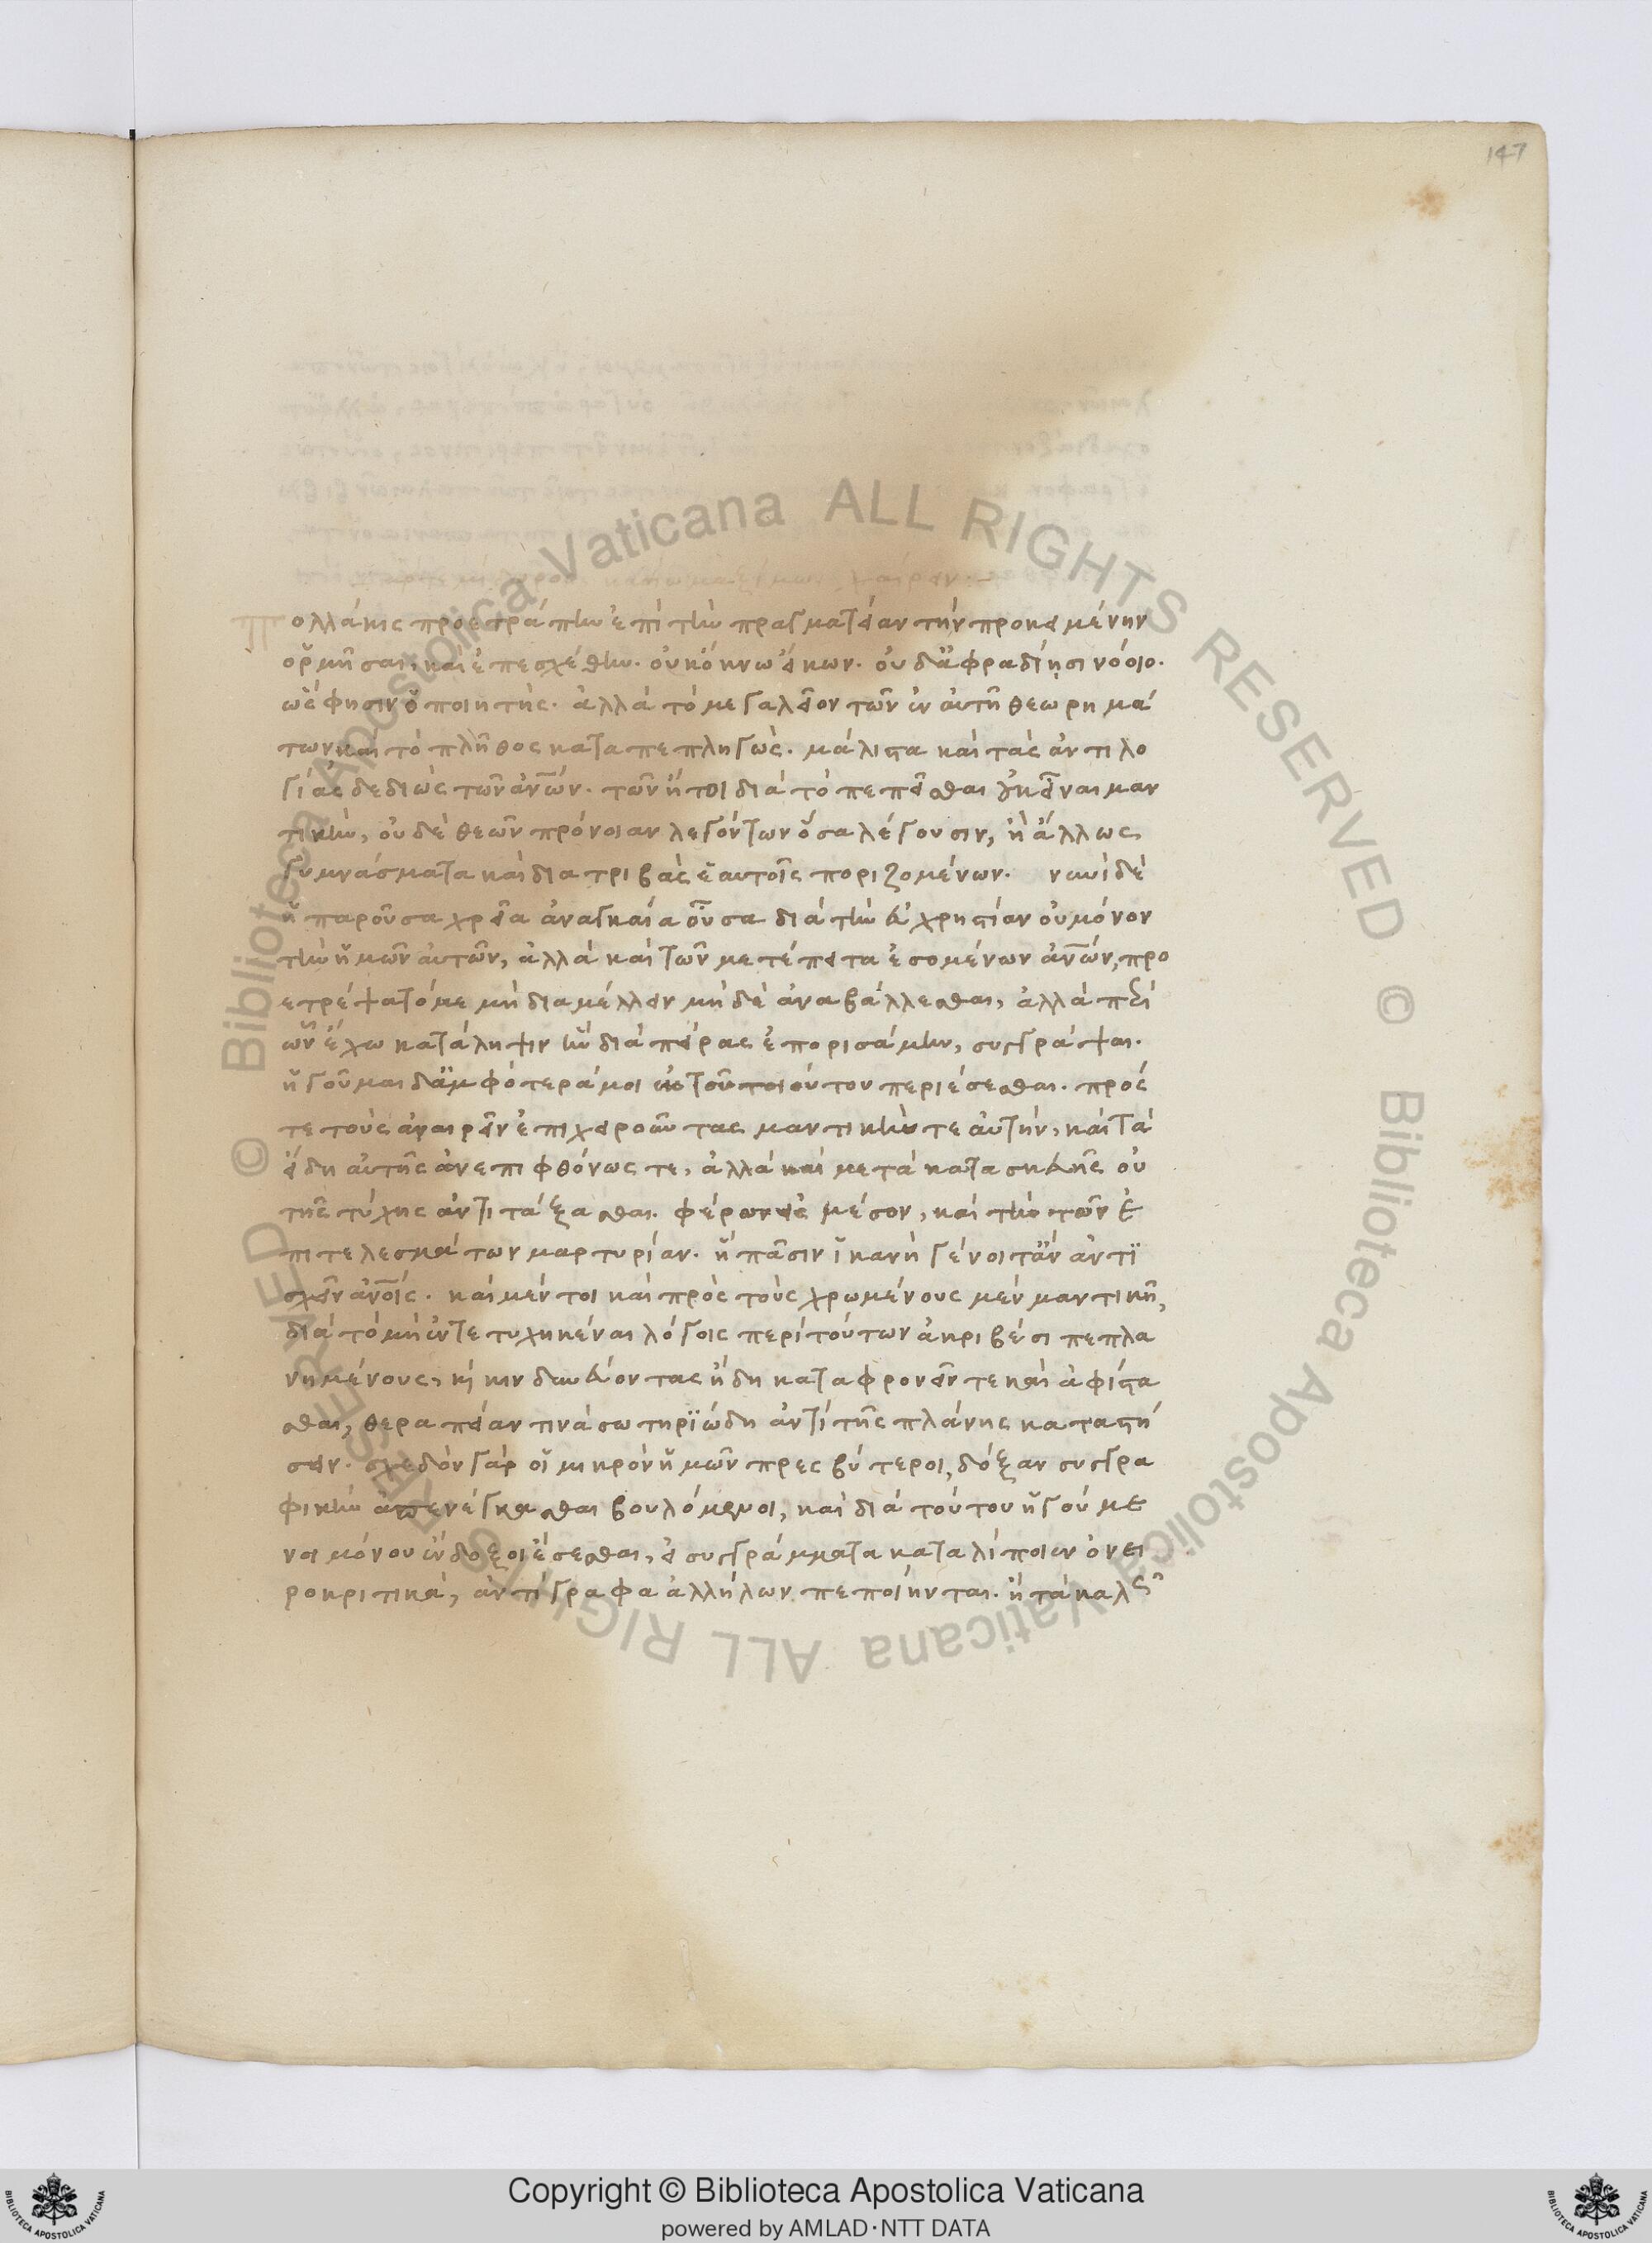 147
Πολλάκις προετράπην ἐπὶ τὴν πραγματείαν τὴν προκειμένην
ὁρμῆσαι, καὶ ἐπεσχέθην. οὐκ ὄκνω εἴκων. οὐδ' ἀφραδίησι νόοιο.
ὥς ἔφησιν ὁ ποιητής. ἀλλὰ τὸ μεγαλεῖον τῶν ἐν αὐτῆ θεωρημά
των καὶ τὸ πλῆθος καταπεπληγώς. μάλιστα καὶ τὰς ἀντιλο
γίας δεδιὼς τῶν ἀν̅ων. τῶν ἤτοι διὰ τὸ πεπεῖσθαι μὴ εἶναι μαν
τικὴν, οὐδὲ θεῶν πρόνοιαν λεγόντων ὅσα λέγουσιν, ἢ ἄλλως
γυμνάσματα καὶ διατριβὰς ἑαυτοῖς ποριζομένων. νυνὶ δὲ
ἡ παροῦσα χρεία ἀναγκαία οὖσα διὰ τὴν εὐχρηστίαν οὐ μόνον
τὴν ἡμῶν αὐτῶν, ἀλλὰ καὶ τῶν μετέπειτα ἐσομένων ἀν̅ων, προ
ετρέψατό με μὴ διαμέλλειν μὴ δὲ ἀναβάλλεσθαι, ἀλλὰ περὶ
ὧν ἔχω κατάληψιν ἣν διὰ πείρας ἐπορισάμην, συγγράψαι.
ἡγοῦμαι δ' ἀμφότερά μοι ἐκ τοῦ τοιούτου περιέσεσθαι. πρός
τε τοὺς ἀναιρεῖν ἐπιχειροῦντας μαντικήν τε αὐτὴν, καὶ τὰ
εἴδη αὐτῆς ἀνεπιφθόνως τε, ἀλλὰ καὶ μετὰ κατασκευῆς οὐ
τῆς τύχης ἀντιτάξασθαι. φέρων εἰς μέσον, καὶ τὴν τῶν ἐ
πιτελεσμάτων μαρτυρίαν. ἣ πᾶσιν ἱκανὴ γένοιτ' ἂν ἀντϊ
σχεῖν ἀν̅οις. καὶ μέντοι καὶ πρὸς τοὺς χρωμένους μὲν μαντικῆ,
διὰ τὸ μὴ ἐντετυχηκέναι λόγοις περὶ τούτων ἀκριβέσι πεπλα
νημένους, κὶ κινδυνεύοντας ἤδη καταφρονεῖν τε καὶ ἀφίστα
σθαι, θεραπείαν τινὰ σωτηριώδη ἀντὶ τῆς πλάνης καταστή
σειν. σχεδὸν γὰρ οἱ μικρὸν ἡμῶν πρεσβύτεροι, δόξαν συγγρα
φικὴν ἀπενέγκασθαι βουλόμενοι, καὶ διὰ τούτου ἡγούμε
νοι μόνου ἔνδοξοι ἔσεσθαι, εἰ συγγράμματα καταλίποιεν ὀνει
ροκριτικά, ἀντίγραφα ἀλλήλων πεποίηνται. ἢ τὰ καλῶς
Copyright © Biblioteca Apostolica Vaticana
powered by AMLAD·NTT DATA
© Biblioteca Apostolica Vaticana ALL RIGHTS RESERVED © Biblioteca Apostolica Vaticana ALL RIGHTS RESERVED